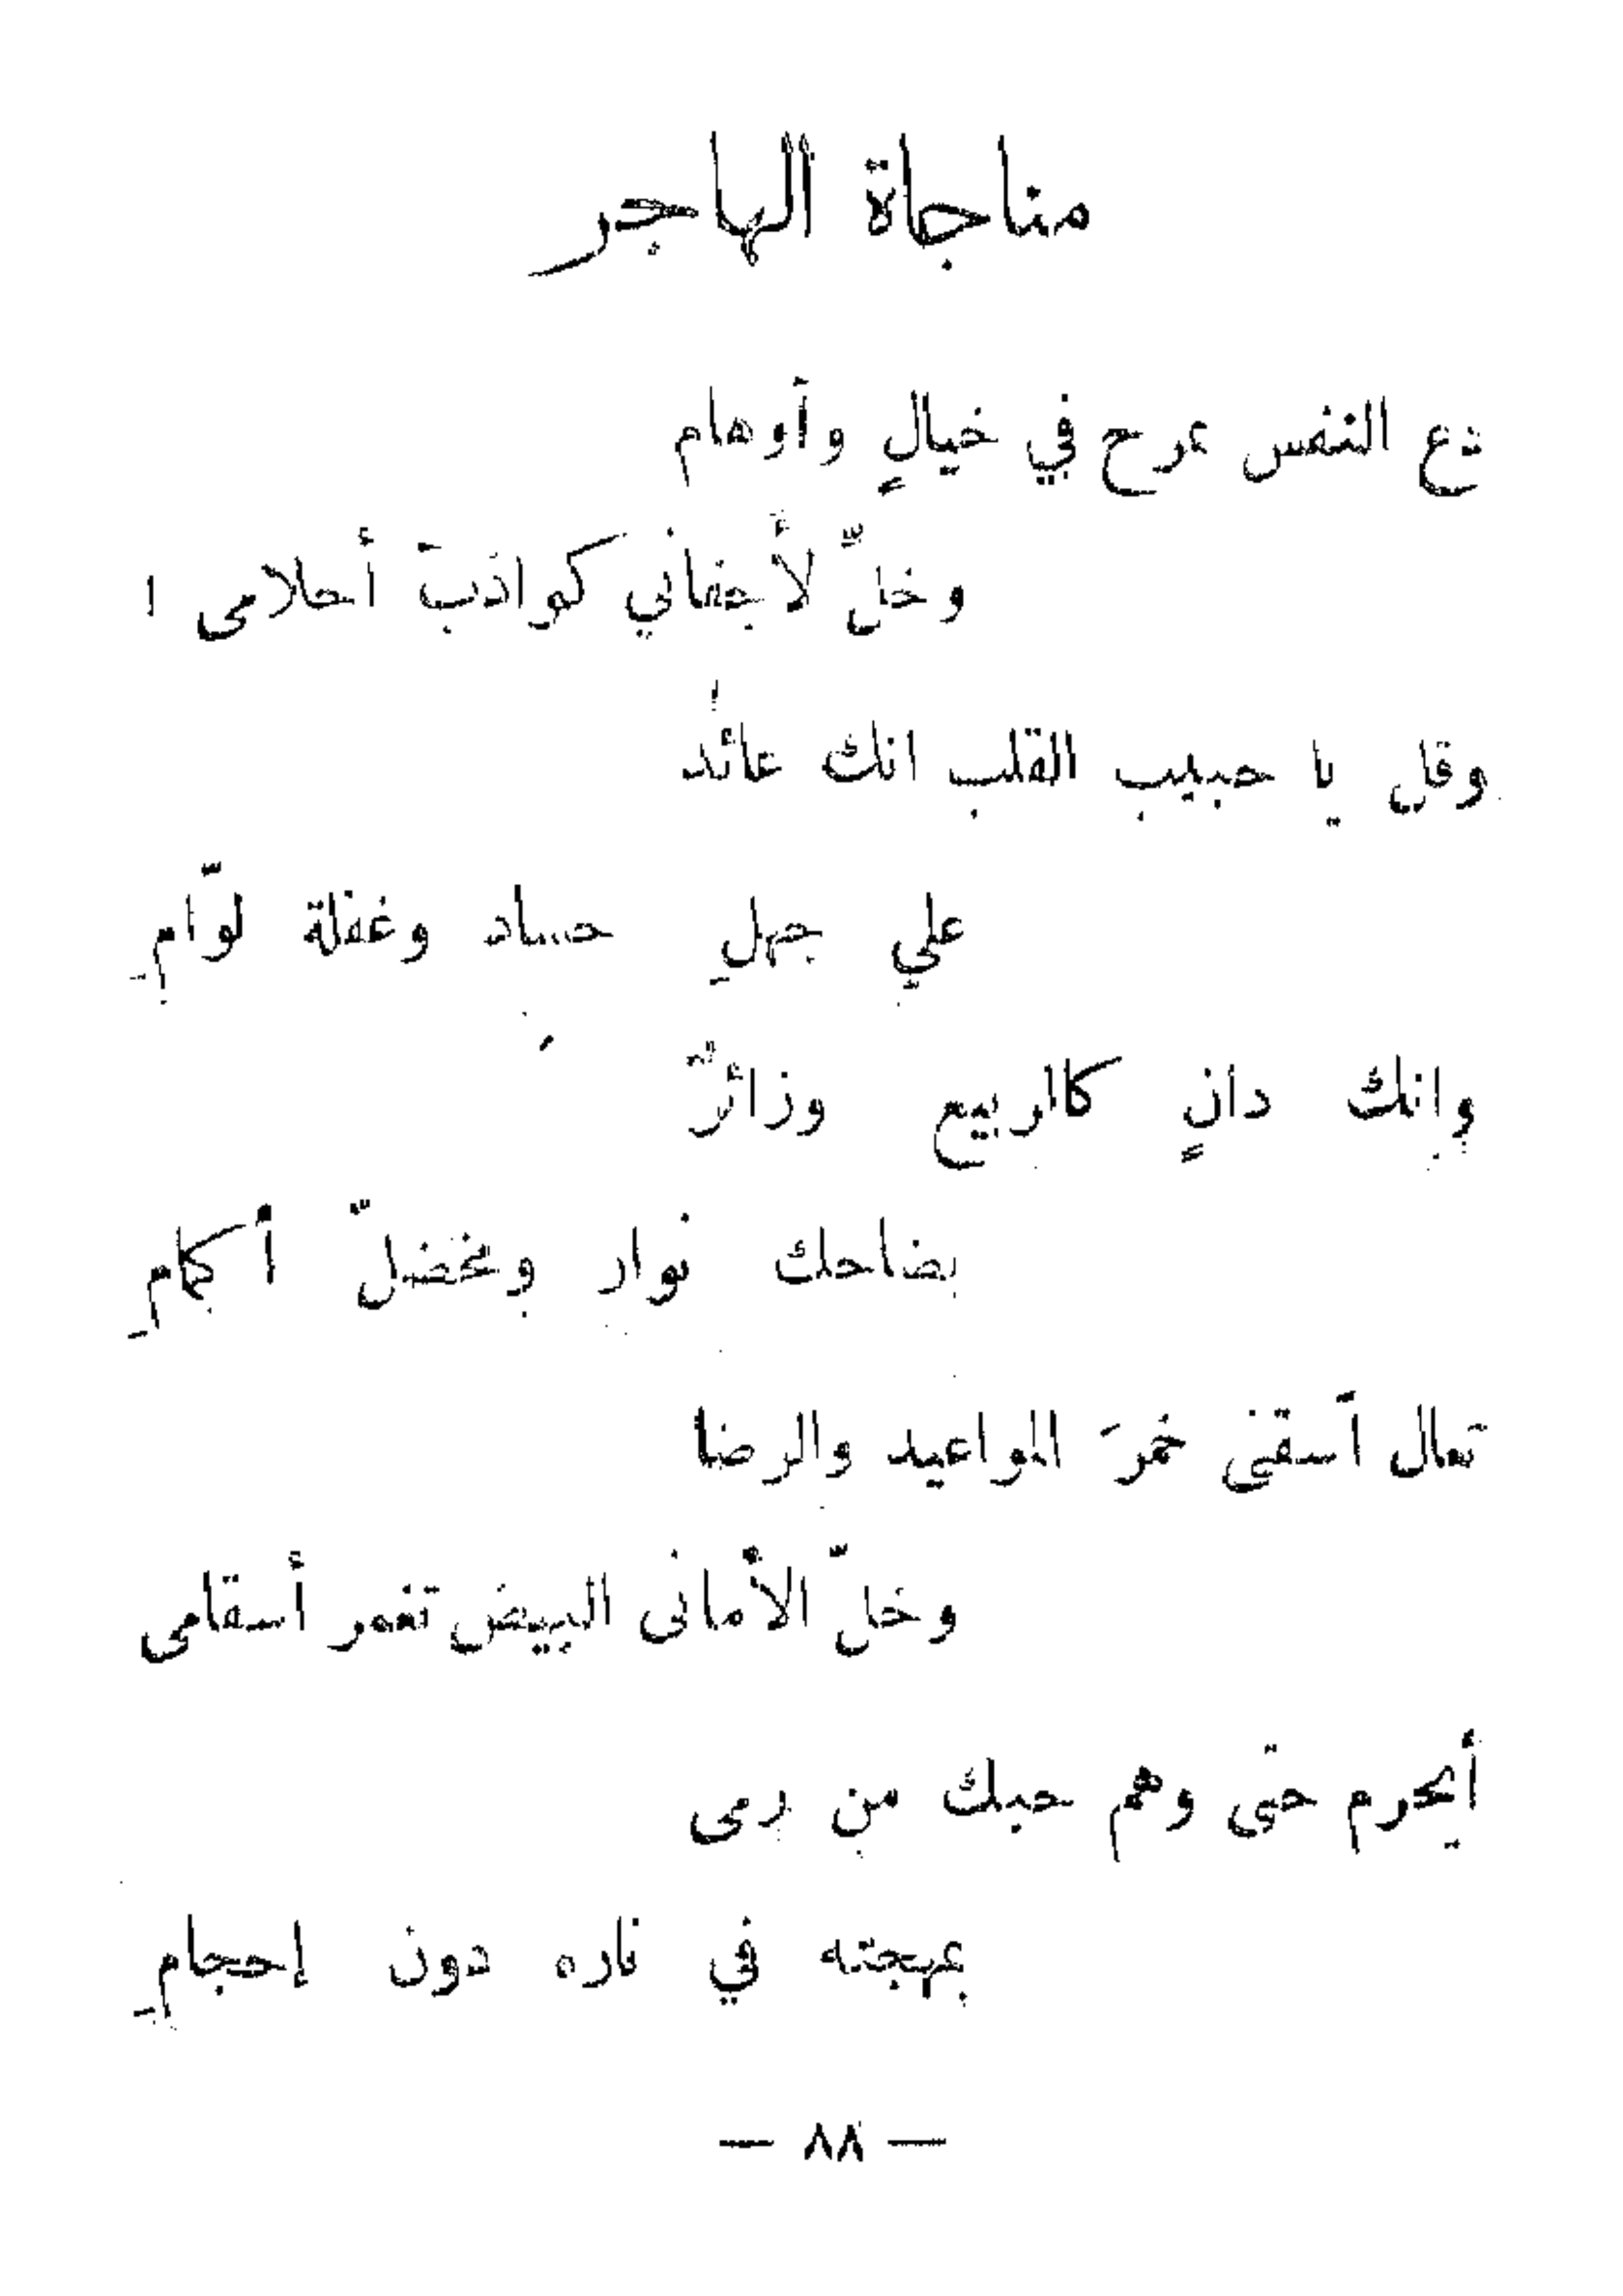 مناجاة الهاجر
دع النفس تمرح في خيالٍ وأوهام
وخلِّ لأجفاني كواذبَ أحلامى !
وقل يا حبيب القلب انك عائدٌ
علي جهلِ حساد وغفلة لوّامِ
وإنك دانٍ كالربيع وزائرٌ
بضاحك نوار ومخضلّ أكمامِ
تعال أسقنى خمرَ المواعيد والرضا
وخلّ الأمانى البيض تغمر أسقامى
أيحرم حتى وهم حبك من رمى
بمهجته في ناره دون إحجامِ
— ٨٨ —